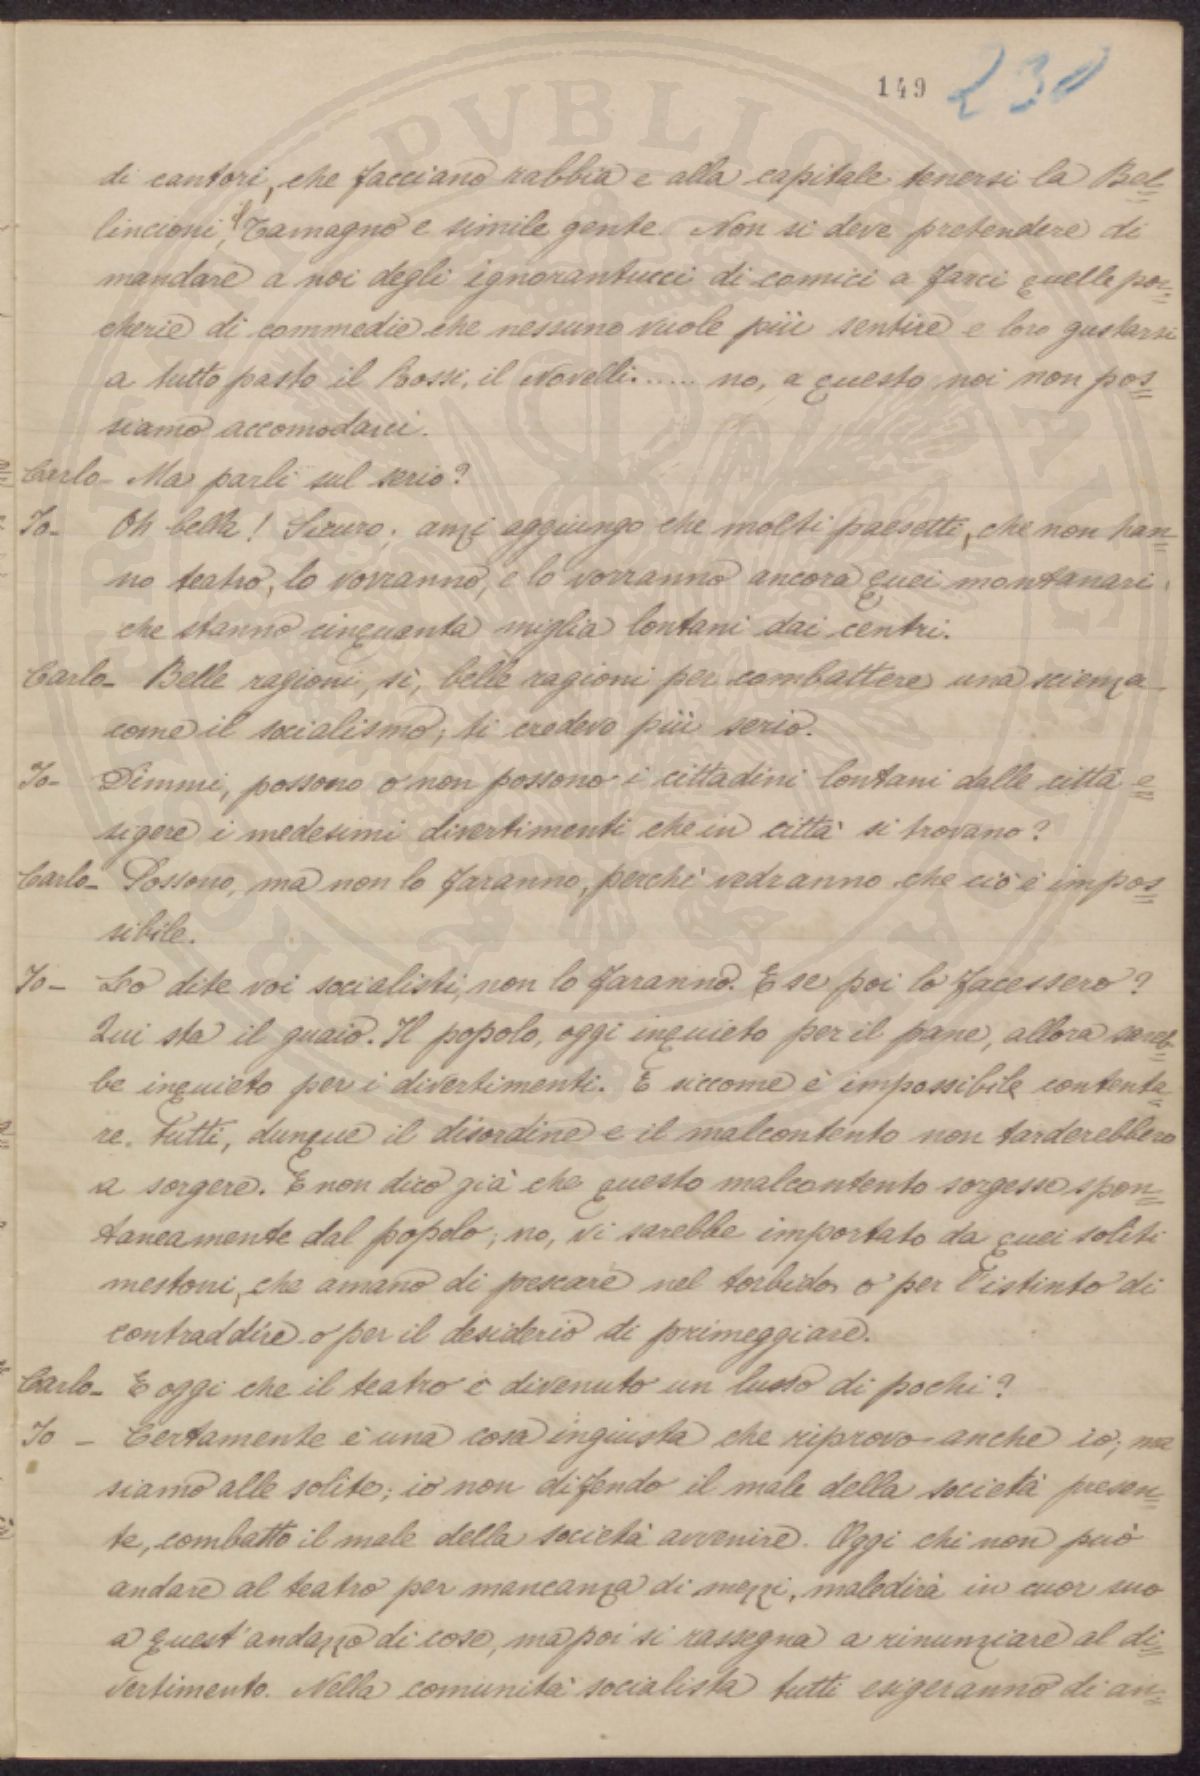 149 230
di cantori, che facciano rabbia e alla capitale tenersi la Bel=
lincioni, il Tamagno e simile gente. Non si deve pretendere di
mandare a noi degli ignorantucci di comici a farci quelle por=
cherie di commedie che nessuno vuole più sentire e loro gustarsi
a tutto pasto il Rossi, il Novelli...... no, a questo noi non pos=
siamo accomodarci.
Carlo- Ma parli sul serio?
Io- Oh bella! Sicuro; anzi aggiungo che molti paesetti, che non han=
no teatro, lo vorranno, e lo vorranno ancora quei montanari
che stanno cinquanta miglia lontani dai centri.
Carlo- Belle ragioni, sì, belle ragioni per combattere una scienza
come il socialismo; ti credevo più serio.
Io- Dimmi, possono o non possono i cittadini lontani dalle città e=
sigere i medesimi divertimenti che in città si trovano?
Carlo- Possono, ma non lo faranno, perchè vedranno che ciò è impos=
sibile.
Io- Lo dite voi socialisti, non lo faranno. E se poi lo facessero?
Qui sta il guaio. Il popolo, oggi inquieto per il pane, allora sareb=
be inquieto per i divertimenti. E siccome è impossibile contenta=
re tutti, dunque il disordine e il malcontento non tarderebbero
a sorgere. E non dico già che questo malcontento sorgesse spon=
taneamente dal popolo; no, vi sarebbe importato da quei soliti
mestoni, che amano di pescare nel torbido, o per l'istinto di
contraddire o per il desiderio di primeggiare.
Carlo- E oggi che il teatro è divenuto un lusso di pochi?
Io - Certamente è una cosa ingiusta che riprovo anche io; ma
siamo alle solite; io non difendo il male della società presen=
te, combatto il male della società avvenire. Oggi chi non può
andare al teatro per mancanza di mezzi, maledirà in cuor suo
a quest'andazzo di cose, ma poi si rassegna a rinunziare al di=
vertimento. Nella comunità socialista tutti esigeranno di an=